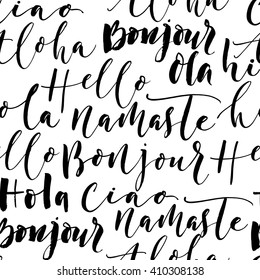 Ciao Bonjour
Aloha Ola hi
Hello
la namaste h
llo Bonjour He
Hola Ciao
Bonjour Namaste
Aloha
shutterstock.com · 410308138